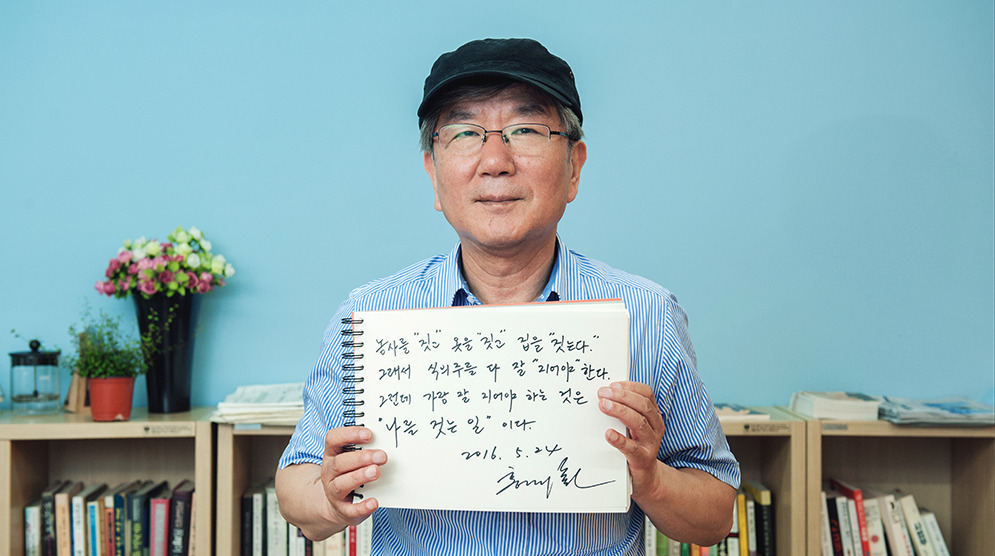 농사를 "짓고" 옷을 "짓고" 집을 "짓는다."
그래서 식의주를 다 잘 "지어야" 한다.
그런데 가장 잘 지어야 하는 것은
"나를 짓는 일" 이다.
2016. 5. 24